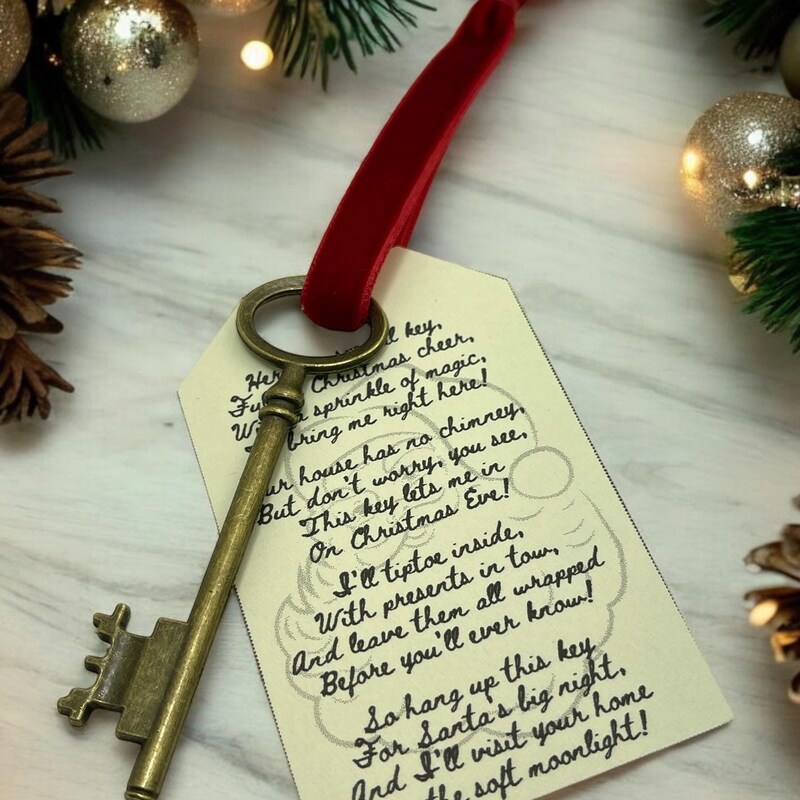 key,
Christmas cheer,
a sprinkle of magic,
bring me right here!
house has no chimney,
But don't worry, you see,
This key lets me in
On Christmas Eve!
I'll tiptoe inside,
With presents in tow,
And leave them all wrapped
Before you'll ever know!
So hang up this key
For Santa's big night,
And I'll visit your home
the soft moonlight!